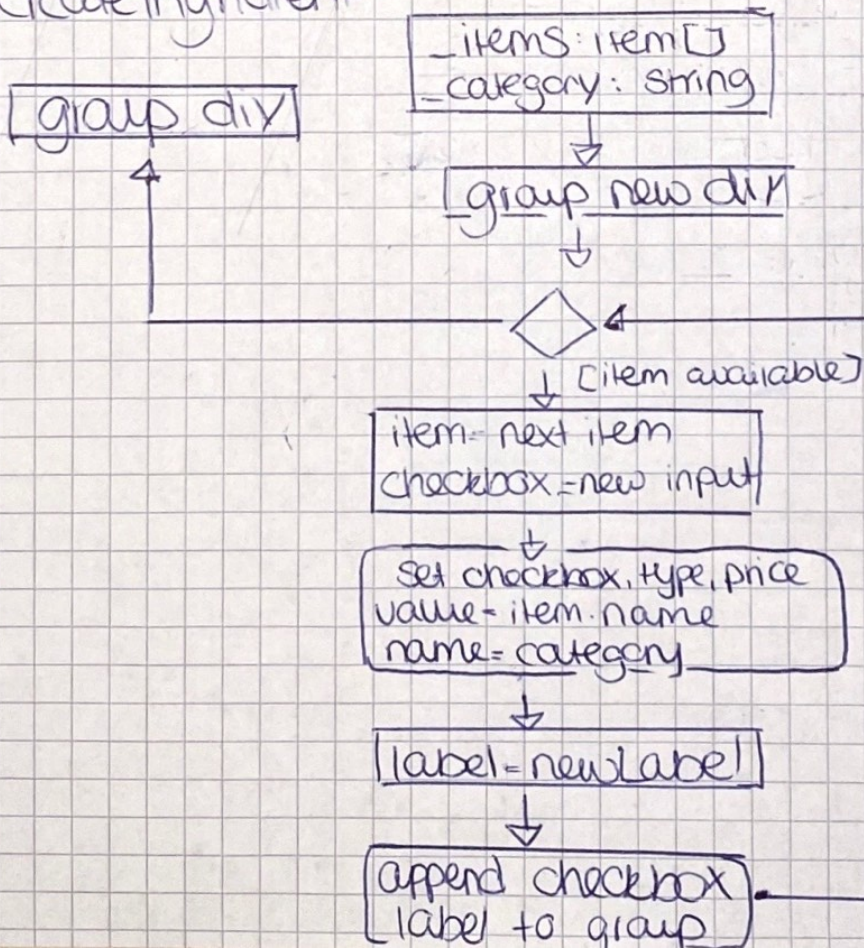 _items: item[]
_category: String
group div
group new div
[item available]
item= next item
checkbox=new input
set checkbox, type, price
value= item.name
name= category
label=newLabel
append checkbox
label to group